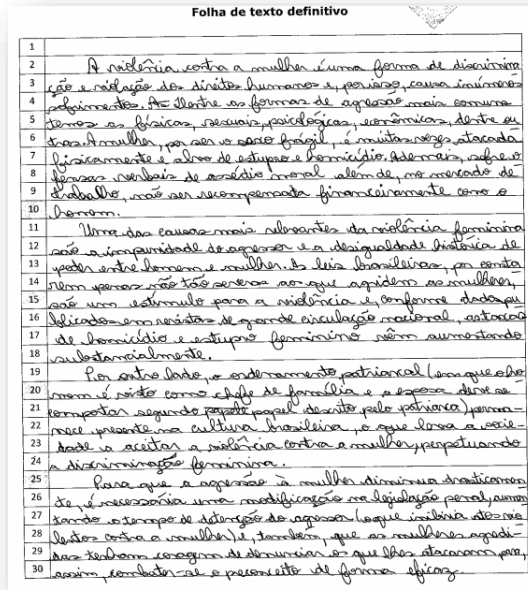 Folha de texto definitivo
1
2 A violência contra a mulher é uma forma de discrimina
3 ção e violação dos direitos humanos e, por isso, causa inúmeros
4 sofrimentos. Dentre as formas de agressão mais comuns
5 temos as físicas, sexuais, psicológicas, econômicas, dentre ou
6 tras. A mulher, por ser o sexo frágil, é muitas vezes atacada
7 fisicamente e alvo de estupro e homicídio. Ademais, sofre o
8 fensas verbais de assédio moral alem de, no mercado de
9 trabalho, não ser recompensada financeiramente como o
10 homem.
11 Uma das causas mais relevantes da violência feminina
12 são a impunidade do agressor e a desigualdade histórica de
13 poder entre homem e mulher. As leis brasileiras, por conta
14 rem penas não tão severas aos que agridem as mulheres,
15 são um estímulo para a violência e, conforme dados pu
16 blicados em revistas de grande circulação nacional, as taxas
17 de homicídio e estupro feminino vêm aumentando
18 substancialmente.
19 Por outro lado, o ordenamento patriarcal (em que o ho
20 mem é visto como chefe de família e a esposa deve se
21 comportar segundo papel descrito pelo patriarca) perma-
22 nece presente na cultura brasileira, o que leva a socie-
23 dade a aceitar a violência contra a mulher, perpetuando
24 a discriminação feminina.
25 Para que a agressão à mulher diminua drasticamen
26 te, é necessária uma modificação na legislação penal, aumen
27 tando o tempo de detenção do agressor (o que inibiria atos vio
28 lentos contra a mulher) e, também, que as mulheres agredi-
29 das tenham coragem de denunciar os que lhes atacaram para,
30 assim, combater-se o preconceito de forma eficaz.